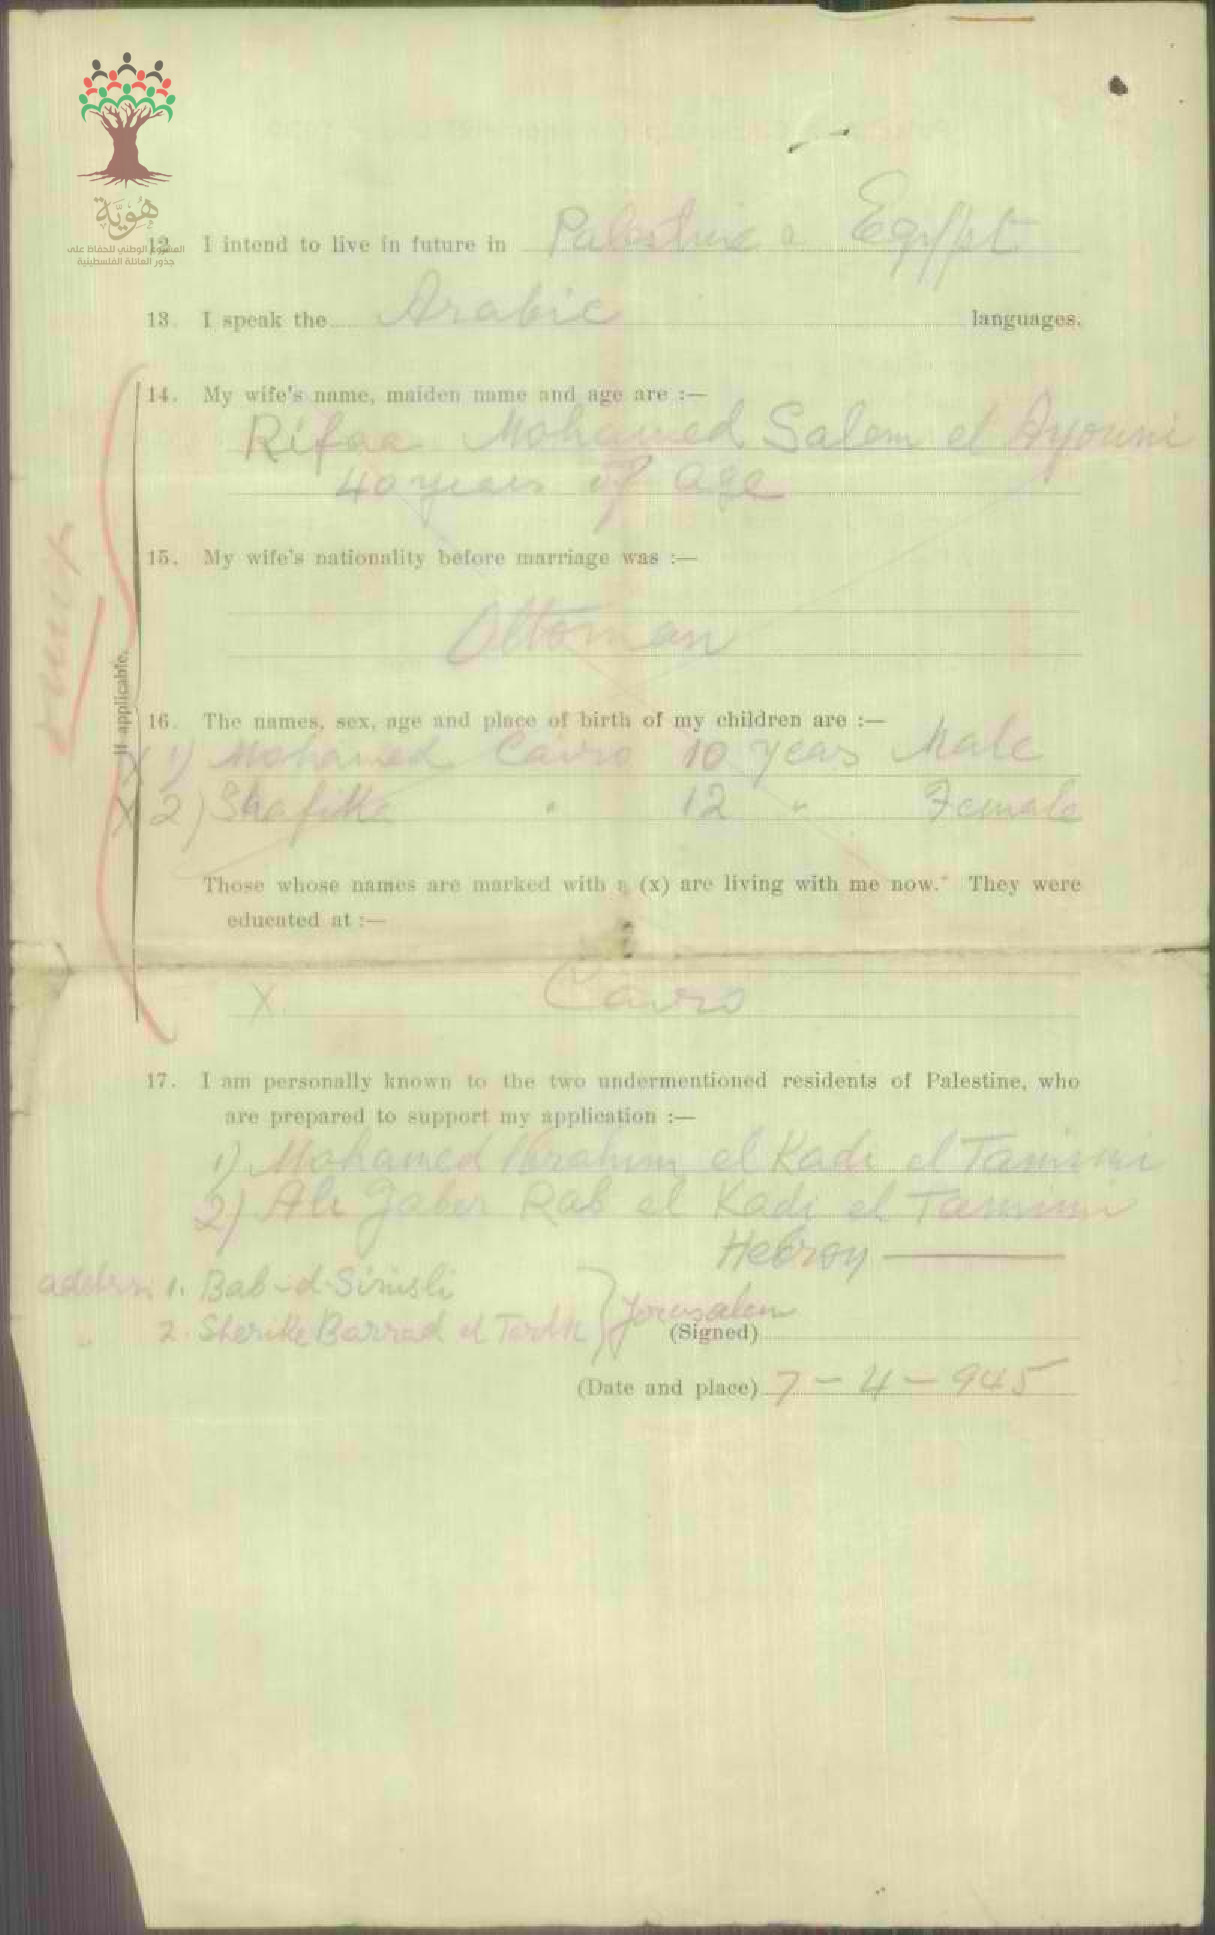 هُوِيَّة
المشروع الوطني للحفاظ على
جذور العائلة الفلسطينية
12. I intend to live in future in Palestine Egypt
13. I speak the Arabic languages.
14. My wife's name, maiden name and age are :—
Rifaa Mohamed Salem el Ayouni
40 years of age
15. My wife's nationality before marriage was :—
Ottoman
If applicable.
16. The names, sex, age and place of birth of my children are :—
X 1) Mohamed Cairo 10 years Male
X 2) Shafika " 12 " Female
Those whose names are marked with a (x) are living with me now. They were
educated at :—
X. Cairo
17. I am personally known to the two undermentioned residents of Palestine, who
are prepared to support my application :—
1) Mohamed Ibrahim el Kadi el Tamimi
2) Ali Jaber Rab el Kadi el Tamimi
Hebron
1. Bab-el-Silsili
2. Barrad Jerusalem
(Signed)
(Date and place) 7 - 4 - 945